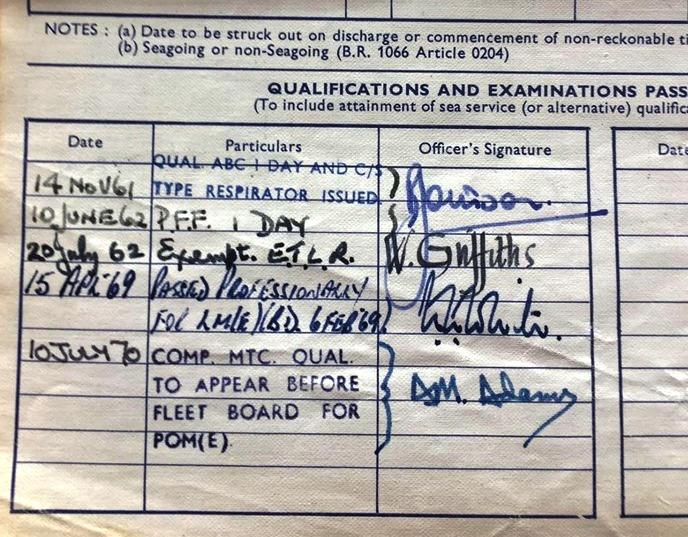 NOTES : (a) Date to be struck out on discharge or commencement of non-reckonable ti
(b) Seagoing or non-Seagoing (B.R. 1066 Article 0204)
QUALIFICATIONS AND EXAMINATIONS PASS
(To include attainment of sea service (or alternative) qualific
Date Particulars Officer's Signature Date
QUAL. ABC 1 DAY AND C/S
14 NOV 61 TYPE RESPIRATOR ISSUED.
10 JUNE 62 P.F.F. 1 DAY
20 July 62 Exempt. E.T.L.R. W. Griffiths
15 APL '69 PASSED PROFESSIONALLY
FOR LM(E)(BD. 6 FEB '69)
10 JULY 70 COMP. MTC. QUAL.
TO APPEAR BEFORE A.M. Adams
FLEET BOARD FOR
POM(E).